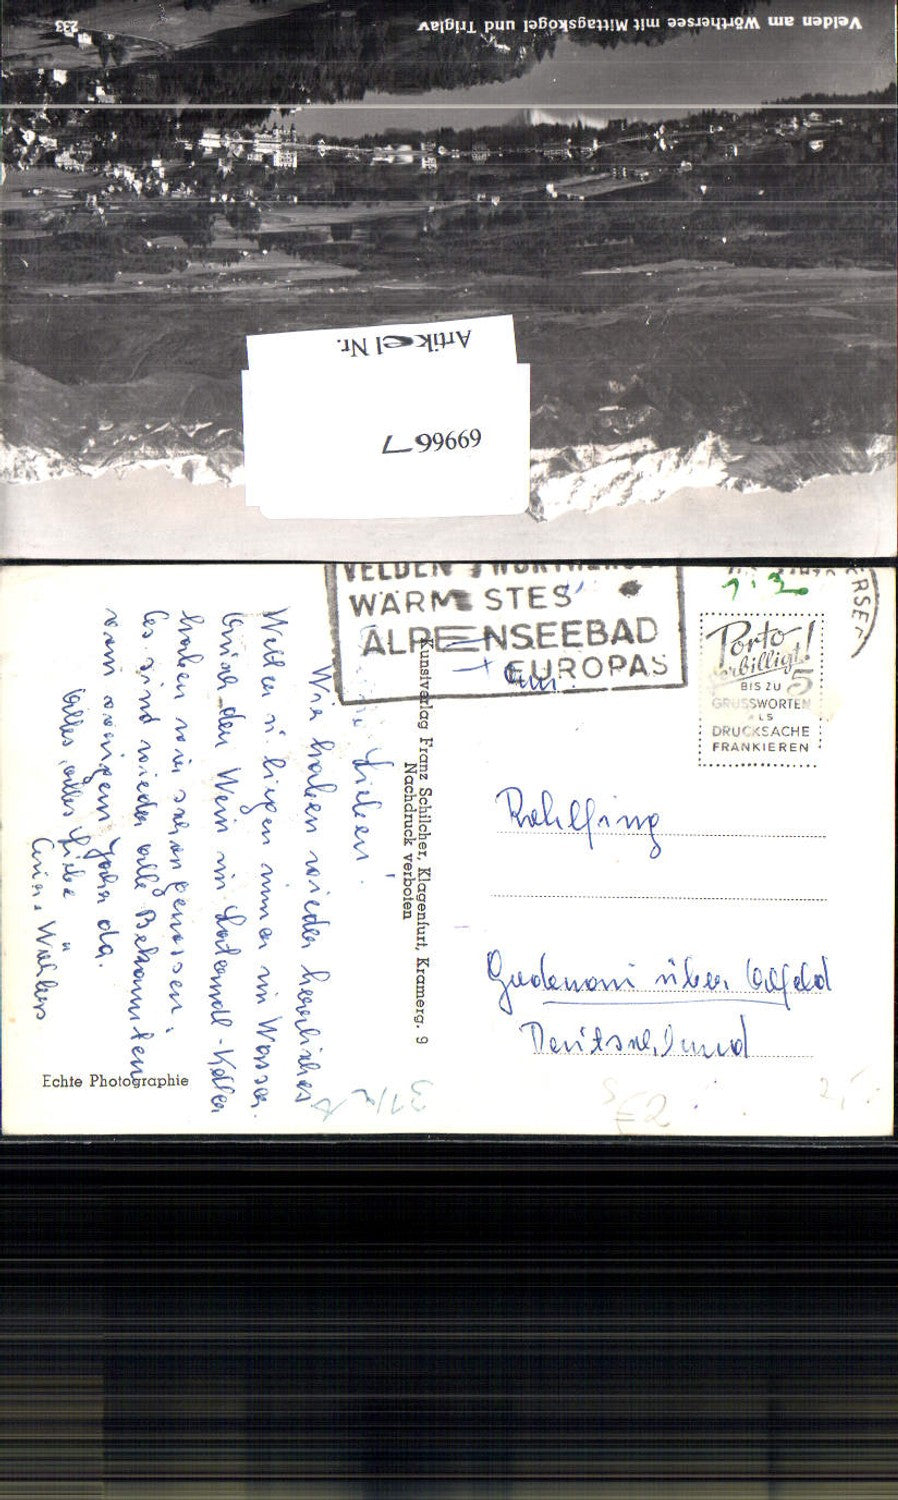 Velden am Wörthersee mit Mittagskogel und Triglav
233
Artikel Nr.
69966 7
VELDEN
WÄRMSTES
ALPENSEEBAD
EUROPAS
Porto
verbilligt!
BIS ZU 5
GRUSSWORTEN
ALS
DRUCKSACHE
FRANKIEREN
Kunstverlag Franz Schilcher, Klagenfurt, Kramerg. 9
Nachdruck verboten
Lieben!
Wir haben wieder herrliches
Wetter u. liegen nur im Wasser.
Auch den Wein im Keller
haben wir schon genossen.
Es sind wieder alle Bekannten
vom vorigen Jahr da.
Alles, alles Liebe
Fam.
Rehlfing
über Alfeld
Deutschland
Echte Photographie